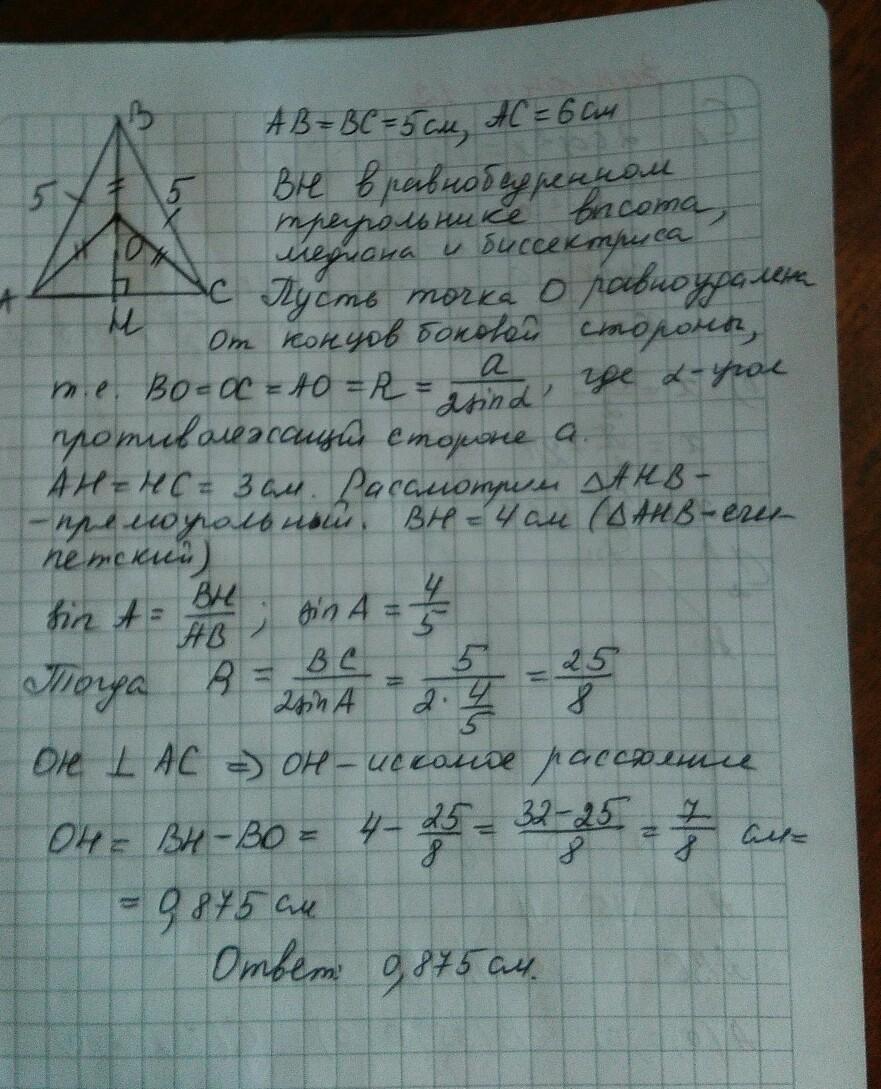 B
5
5
O
A
C
H
AB=BC=5см, AC=6см
BH в равнобедренном
треугольнике высота,
медиана и биссектриса
Пусть точка O равноудалена
от концов боковой стороны,
т.е. BO=OC=AO=R=a/(2sinα), где α-угол
противолежащий стороне a.
AH=HC=3см. Рассмотрим △AHB-
-прямоугольный. BH=4см (△AHB-еги-
петский)
sin A = BH/AB; sin A = 4/5
Тогда R = BC/(2sinA) = 5/(2·4/5) = 25/8
OH ⊥ AC ⇒ OH-искомое расстояние
OH = BH-BO = 4-25/8 = (32-25)/8 = 7/8 см=
= 0,875 см
Ответ: 0,875 см.